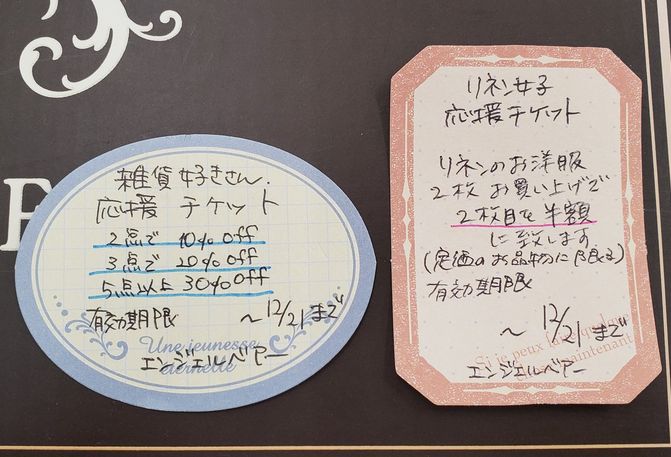 雑貨好きさん.
応援 チケット
2点で 10% off
3点で 20% off
5点以上 30% off
有効期限
～12/21まで
Une jeunesse
éternelle
エンジェルベアー
リネン女子
応援チケット
リネンのお洋服
2枚 お買い上げで
2枚目を半額
に致します
(定価のお品物に限る)
有効期限
～12/21まで
Si je peux
maintenant
エンジェルベアー